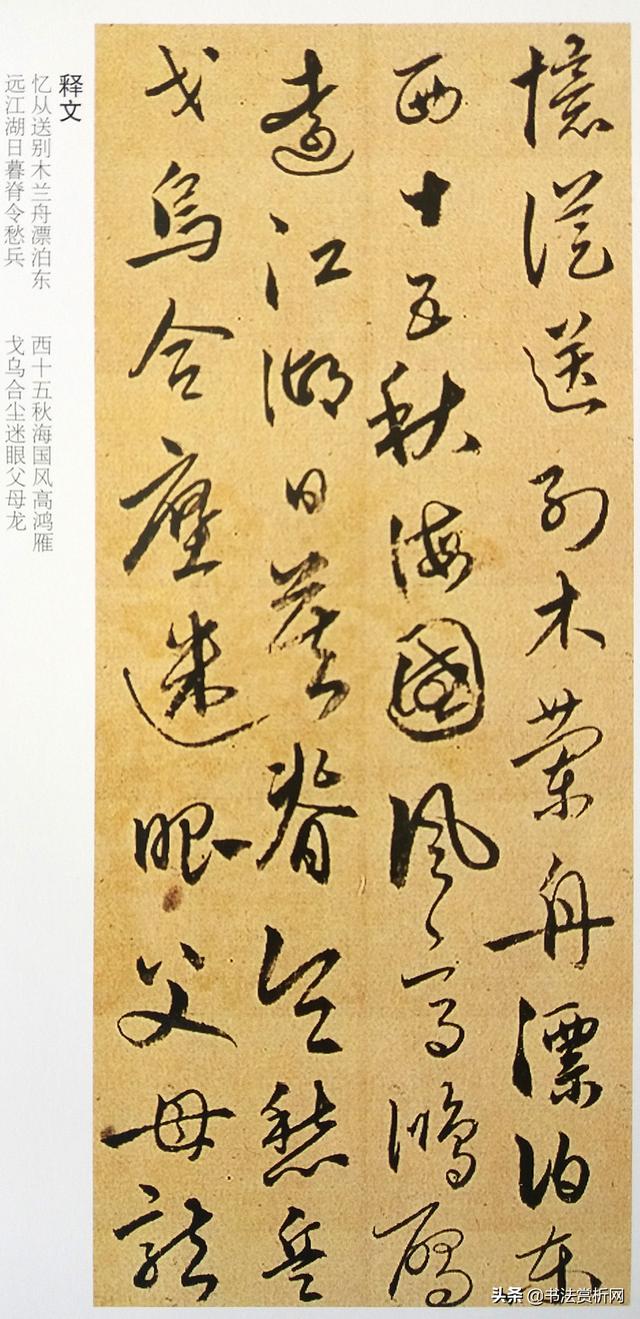 憶從送別木蘭舟漂泊東
西十五秋海國風高鴻雁
遠江湖日暮脊令愁兵
戈烏合塵迷眼父母龍
释文
忆从送别木兰舟漂泊东
西十五秋海国风高鸿雁
远江湖日暮脊令愁兵
戈乌合尘迷眼父母龙
头条 @书法赏析网